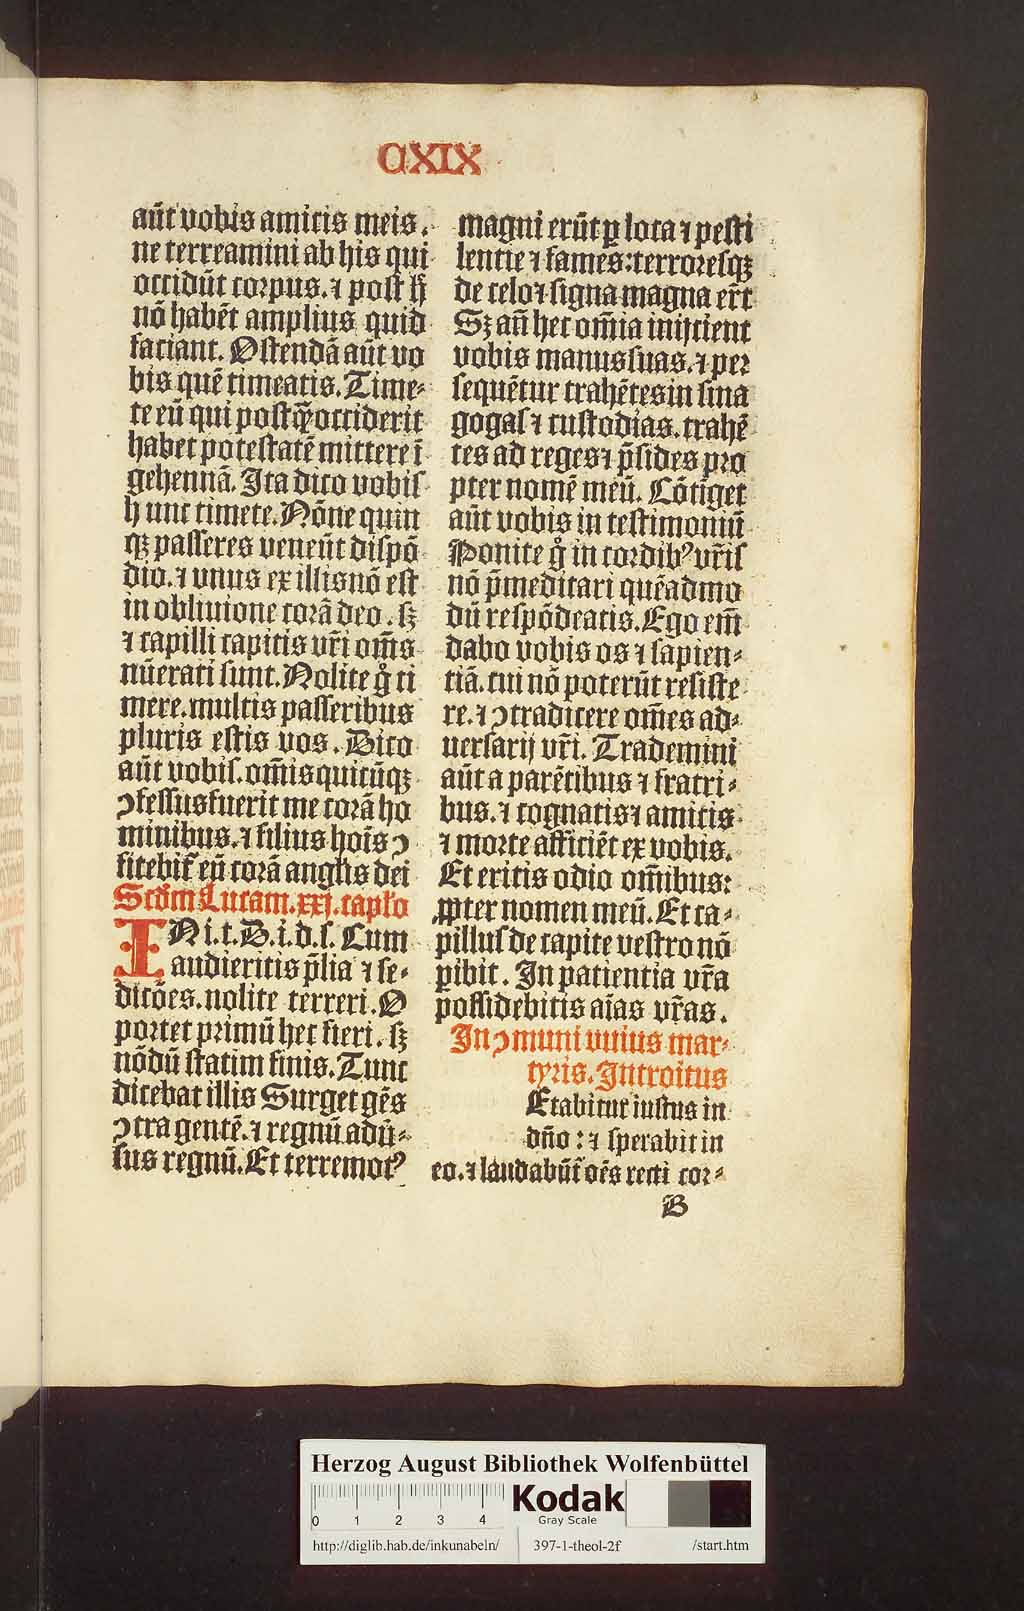 CXIX
aūt vobis amicis meis.
ne terreamini ab his qui
occidūt corpus. ⁊ post hͦ
nō habēt amplius quid
faciant. Ostendā aūt vo
bis quē timeatis. Time⸗
te eū qui postꝙ̄ occiderit
habet potestatē mittere ī
gehennā. Ita dico vobis
hunc timete. Nōne quin
qꝫ passeres veneūt dispō
dio. ⁊ vnus ex illis nō est
in obliuione corā deo. sꝫ
⁊ capilli capitis vr̄i om̄s
nūerati sunt. Nolite gͦ ti
mere. multis passeribus
pluris estis vos. Dico
aūt vobis. om̄is quicūqꝫ
ꝯfessus fuerit me corā ho
minibus. ⁊ filius hoīs ꝯ
fitebit̄ eū corā angl̄is dei
Scd̄m Lucam. xxj. capl̄o
IN i. t. D. i. d. s. Cum
audieritis p̄lia ⁊ se⸗
dicōes. nolite terreri. O
portet primū hec fieri. sꝫ
nōdū statim finis. Tunc
dicebat illis Surget gēs
ꝯtra gentē. ⁊ regnū adū⸗
sus regnū. Et terremotꝰ
magni erūt ꝑ loca ⁊ pesti
lentie ⁊ fames: terroresqꝫ
de celo ⁊ signa magna er̄t
Sꝫ an̄ hec om̄ia inijcient
vobis manus suas. ⁊ per
sequētur trahētes in sina
gogas ⁊ custodias. trahē
tes ad reges ⁊ p̄sides pro
pter nomē meū. Cōtiget
aūt vobis in testimoniū
Ponite gͦ in cordibꝰ vr̄is
nō p̄meditari quēadmo
dū respōdeatis. Ego em̄
dabo vobis os ⁊ sapien⸗
tiā. cui nō poterūt resiste
re. ⁊ ꝯtradicere om̄es ad⸗
uersarij vr̄i. Trademini
aūt a parētibus ⁊ fratri⸗
bus. ⁊ cognatis ⁊ amicis
⁊ morte afficiēt ex vobis.
Et eritis odio om̄ibus:
ꝓpter nomen meū. Et ca⸗
pillus de capite vestro nō
ꝑibit. In patientia vr̄a
possidebitis aīas vr̄as.
In ꝯmuni vnius mar⸗
tyris. Introitus
Etabitur iustus in
dn̄o: ⁊ sperabit in
eo. ⁊ laudabūt̄ oēs recti cor⸗
B
Herzog August Bibliothek Wolfenbüttel
0 1 2 3 4
Kodak
Gray Scale
http://diglib.hab.de/inkunabeln/ 397-1-theol-2f /start.htm